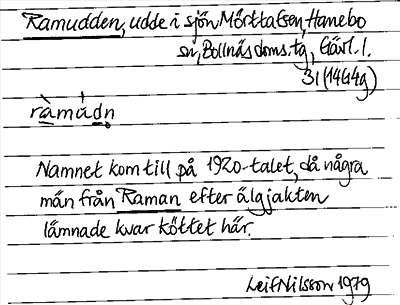 Ramudden, udde i sjön Mörttatsen, Hanebo
sn, Bollnäs doms. tg, Gävl. l.
31 (14G4g)
ràmádn
Namnet kom till på 1920-talet, då några
män från Raman efter älgjakten
lämnade kvar köttet här.
Leif Nilsson 1979